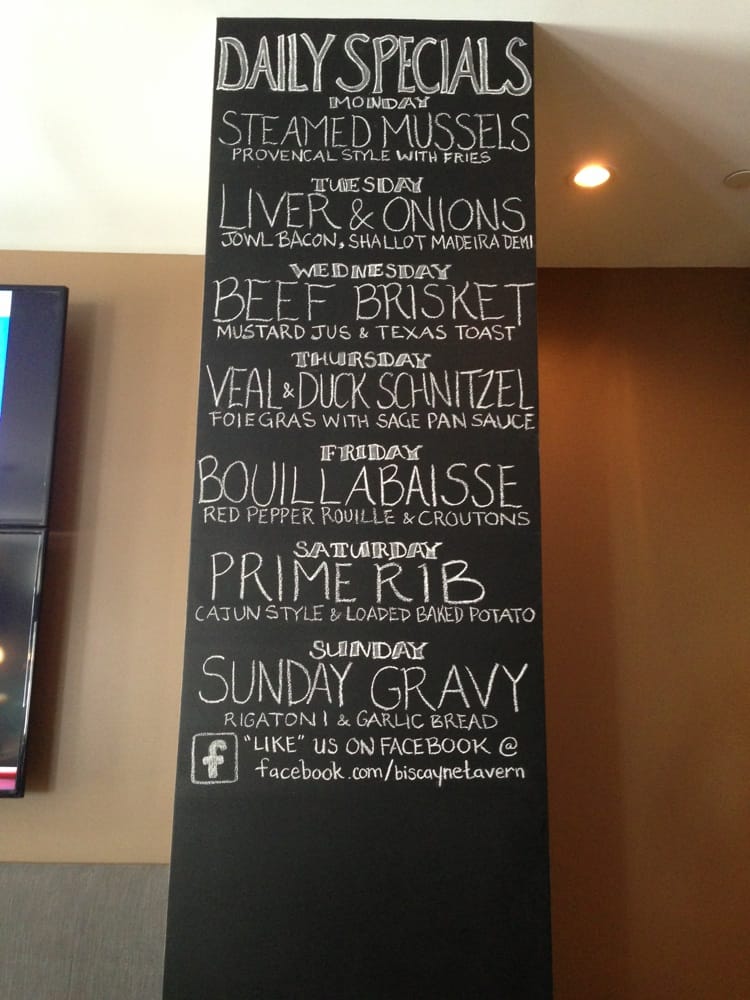 DAILY SPECIALS
MONDAY
STEAMED MUSSELS
PROVENCAL STYLE WITH FRIES
TUESDAY
LIVER & ONIONS
JOWL BACON, SHALLOT MADEIRA DEMI
WEDNESDAY
BEEF BRISKET
MUSTARD JUS & TEXAS TOAST
THURSDAY
VEAL & DUCK SCHNITZEL
FOIE GRAS WITH SAGE PAN SAUCE
FRIDAY
BOUILLABAISSE
RED PEPPER ROUILLE & CROUTONS
SATURDAY
PRIME RIB
CAJUN STYLE & LOADED BAKED POTATO
SUNDAY
SUNDAY GRAVY
RIGATONI & GARLIC BREAD
f "LIKE" US ON FACEBOOK @
facebook.com/biscaynetavern